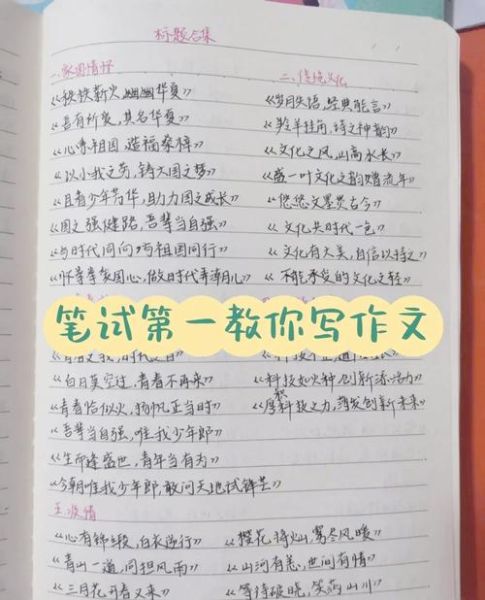 标题合集
一、家国情怀
《秩秩新火，幽幽华夏》
《吾有所爱，其名华夏》
《心系祖国，造福桑梓》
《以小我之芳，铸大国之梦》
《且看少年芳华，助力国之成长》
《国之强健路，吾辈当自强》
《与时代同向，与祖国同行》
《怀拳拳爱国心，做时代弄潮儿》
二、传统文化
《岁月失语，经典能言》
《羚羊挂角，诗之神韵》
《文化之风，山高水长》
《盛一叶文化之韵赠流年》
《悠悠文墨贯古今》
《文化共时代一色》
《文化有大美，自信以持之》
《不能承受的文化之轻》
笔试第一教你写作文
《白日莫空过，青春不再来》
《青春恰似火，扬帆正当时》
《吾辈当自强，唯我少年郎》
《生而逢盛世，青年当有为》
《今朝唯我少年郎，敢问天地试锋芒》
《科技如火种，创新添活力》
《聚科技之力，蒲发创新未来》
五、疫情
《心有锦缎，白衣逆行》
《青山一道，同担风雨》
《三月花开春又来》
《樱花将灿，寒尽风暖》
《山河有恙，世间有情》
《等待破晓，笑荫山川》